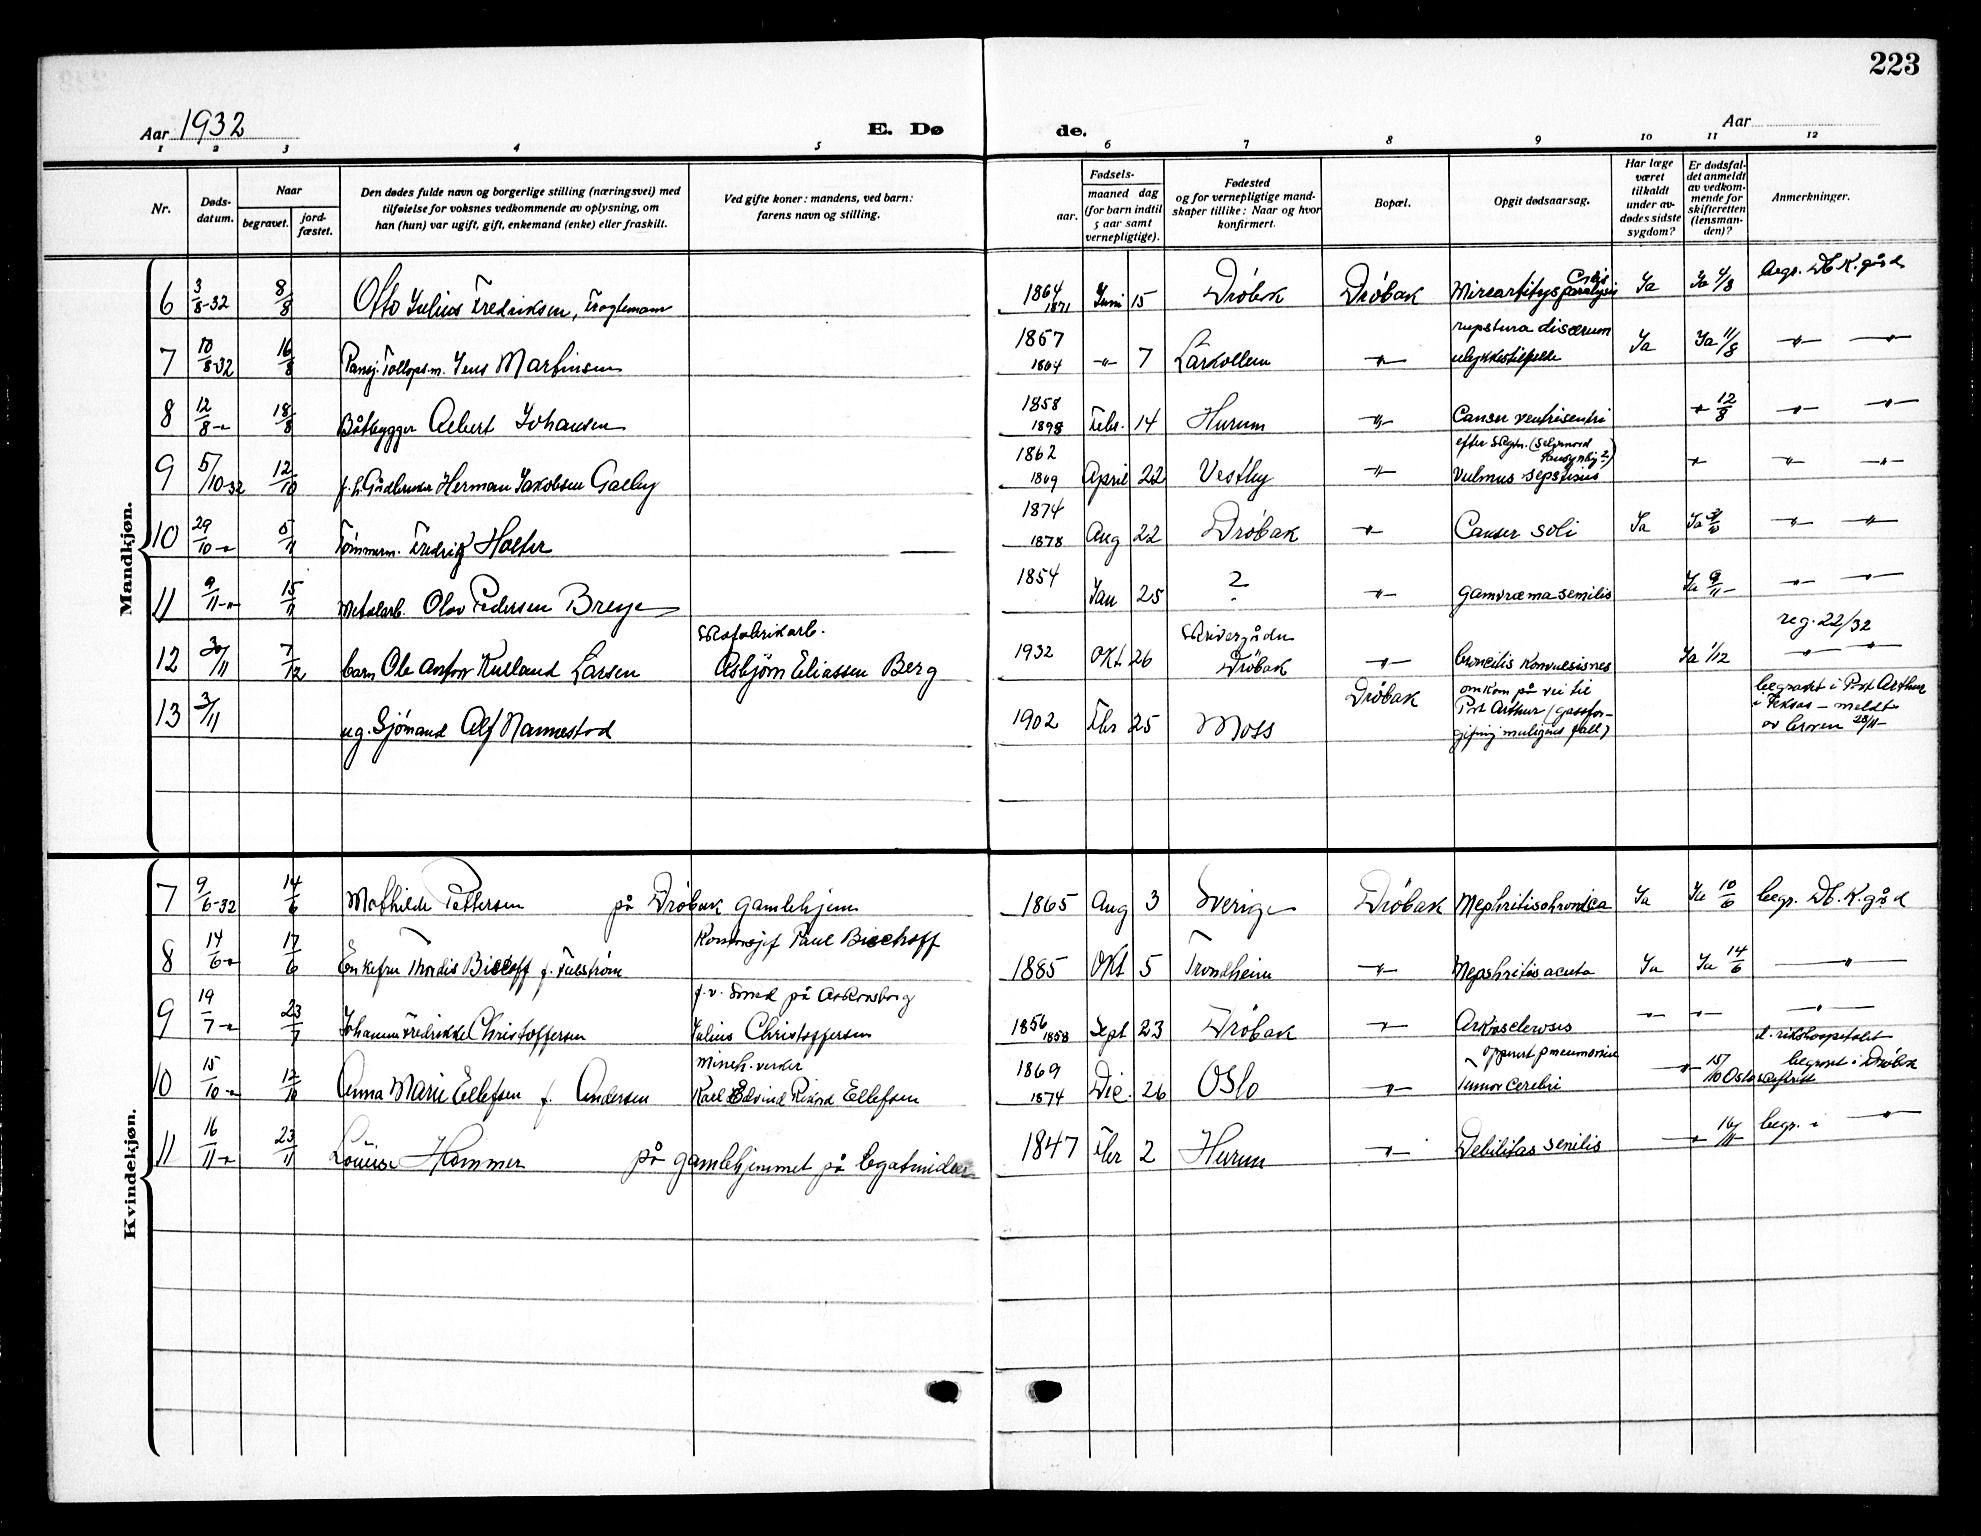 223
Aar 1932
E. Dø
de.
Aar
1 2 3 4 5 6 7 8 9 10 11 12
Nr.
Døds-
datum.
Naar
begravet.
jord-
fæstet.
Den dødes fulde navn og borgerlige stilling (næringsvei) med
tilføielse for voksnes vedkommende av oplysning, om
han (hun) var ugift, gift, enkemand (enke) eller fraskilt.
Ved gifte koner: mandens, ved barn:
farens navn og stilling.
Fødsels-
aar.
maaned dag
(for barn indtil
5 aar samt
vernepligtige).
Fødested
og for vernepligtige mand-
skaper tillike: Naar og hvor
konfirmert.
Bopæl.
Opgit dødsaarsag.
Har læge
været
tilkaldt
under av-
dødes sidste
sygdom?
Er dødsfal-
det anmeldt
av vedkom-
mende for
skifteretten
(lensman-
den)?
Anmerkninger.
Mandkjøn.
6 3/8-32 8/8 Otto Julius Fredriksen, 1864 1871 Juni 15 Drøbak Drøbak Ja Ja 4/8 begr. Db. K.gård
7 10/8-32 16/8 Pensj. Tollopsm. Jens Martinsen 1857 7 Larkollen -"- ulykkestilfelle Ja Ja 11/8 -"- -"-
8 12/8 -"- 18/8 Båtbygger Albert Johansen 1858 1898 Febr. 14 Hurum -"- Canser ventriscutri -"- 12/8 -"- -"-
9 5/10-32 12/10 f.h. Gårdbruker Herman Jakobsen Galby 1862 1869 April 22 Vestby -"- -"- -"- -"-
10 29/10 -"- 5/11 Tømmerm. Fredrik Holter 1874 1878 Aug 22 Drøbak -"- Canser soli Ja Ja -"- -"-
11 9/11 -"- 15/11 Metalarb. Olav Pedersen Breye 1854 Jan 25 ? -"- senilis Ja 9/11 -"- -"-
12 30/11 7/12 barn Ole Larsen Skofabrikarb.
Asbjørn Eliassen Berg 1932 Okt 26 Skrivergården
Drøbak -"- Ja 1/12 reg. 22/32
-"- -"-
13 3/11 ug. Sjømand Alf Nannestad 1902 Fbr 25 Moss Drøbak omkom på vei til
Port Arthur (gassfor-
giftning muligens fall) begravet i Port Arthur
i Teksas - meldt
av broren 28/11-
Kvindekjøn.
7 9/6-32 14/6 Mathilde Pettersen på Drøbak gamlehjem 1865 Aug 3 Sverige Drøbak Nephritis chronica Ja Ja 10/6 begr. Db. K.gård
8 14/6 -"- 17/6 Enkefru Thordis Bischoff f. Paul Bischoff 1885 Okt 5 Trondheim -"- Nephritis acuta Ja Ja 14/6 -"-
9 19/7 -"- 23/7 Johanne Fredrikke Christoffersen f.v. Smed på Oskarsborg
Julius Christoffersen 1856 1858 Sept 23 Drøbak -"- -"- -"- -"-
10 15/10 -"- 12/10 Anna Marie Ellefsen f. Andersen Karl Edvind Ellefsen 1869 1874 Dec. 26 Oslo -"- Tumor cerebri -"- 15/10 Oslo d. rikshospitalet
begravet i Drøbak
11 16/11 -"- 23/11 Louise Hammer på gamlehjemmet på legatmidler 1847 Fbr 2 Hurum -"- Debilitas senilis -"- 16/11 begr. i -"-